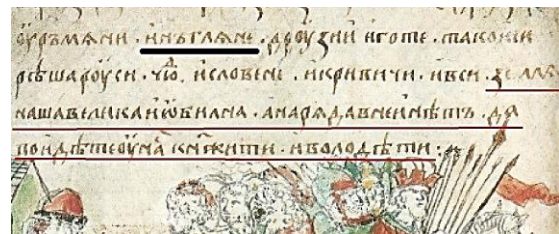 оурьмѧни · инъглѧне · дроузии иготе · такоже
рѣшароуси · чю҃ · исловене · икривичи · ивси · землѧ
нашавеликаиѡбилна · анарѧдавнеинѣтъ · да
поидѣтеоуна кнѧжити · иволодѣти :